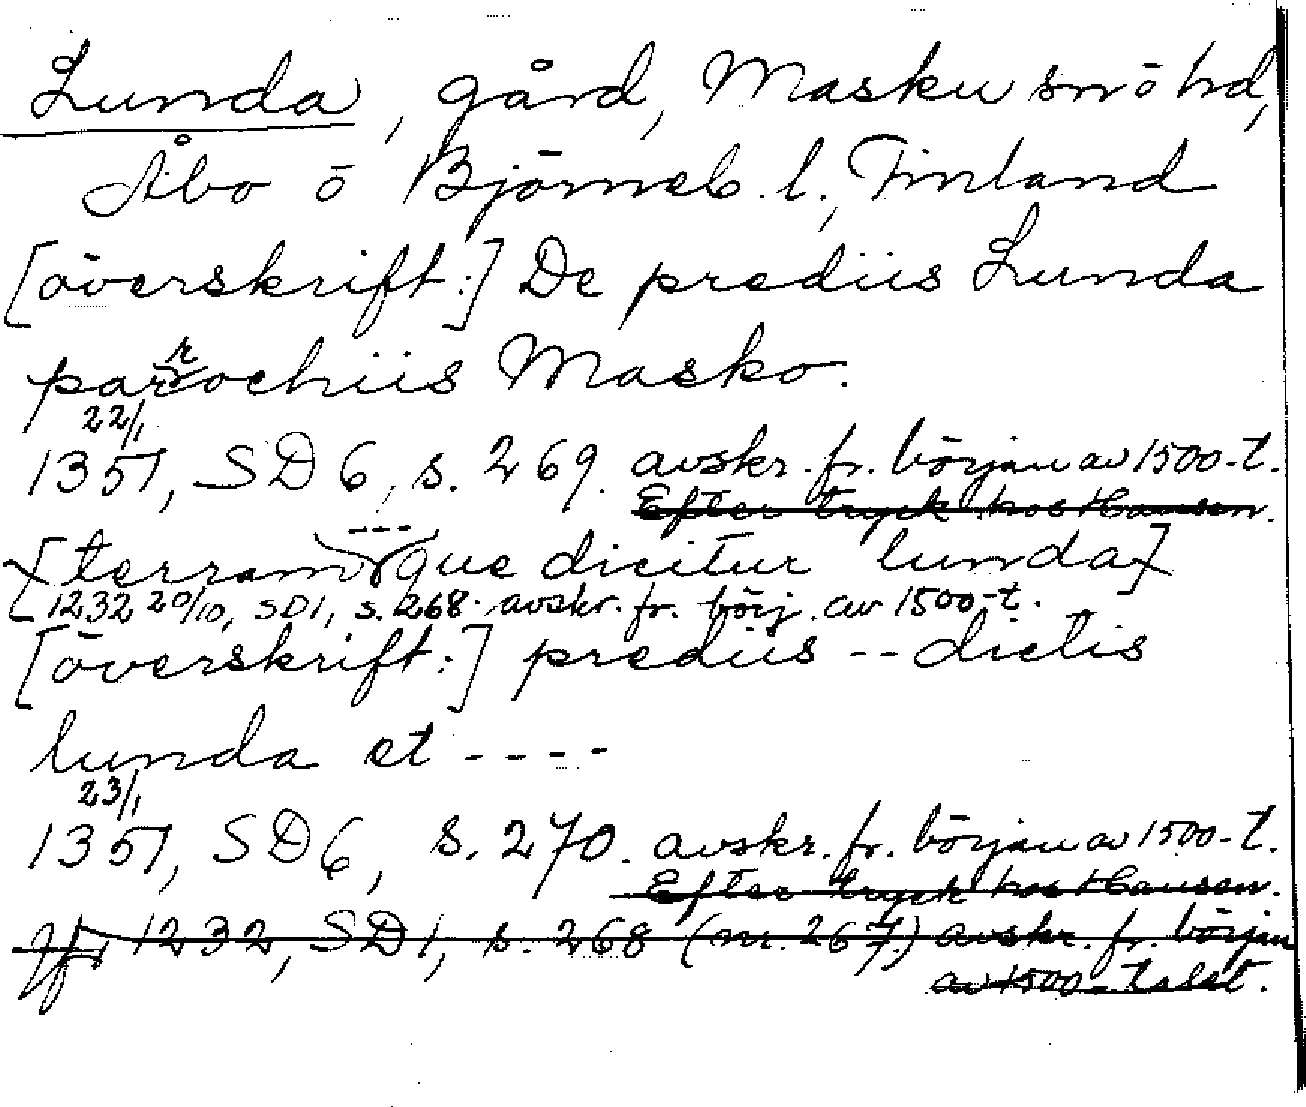 Lunda, gård, Masku sn ō hd,
Åbo ō Björneb. l., Finland
[överskrift:] De prediis Lunda
parrochiis Masko.
22/1
1351, SD 6, s. 269. avskr. fr. början av 1500-t.
Efter tryck hos Hausen.
[terram --- que dicitur lunda]
1232 20/10, SD1, s. 268. avskr. fr. börj. av 1500-t.
[överskrift:] prediis -- dictis
lunda et ----
23/1
1351, SD6, s. 270. avskr. fr. början av 1500-t.
Efter tryck hos Hausen.
Jfr 1232, SD1, s. 268 (nr. 267.) avskr. fr. början
av 1500-talet.